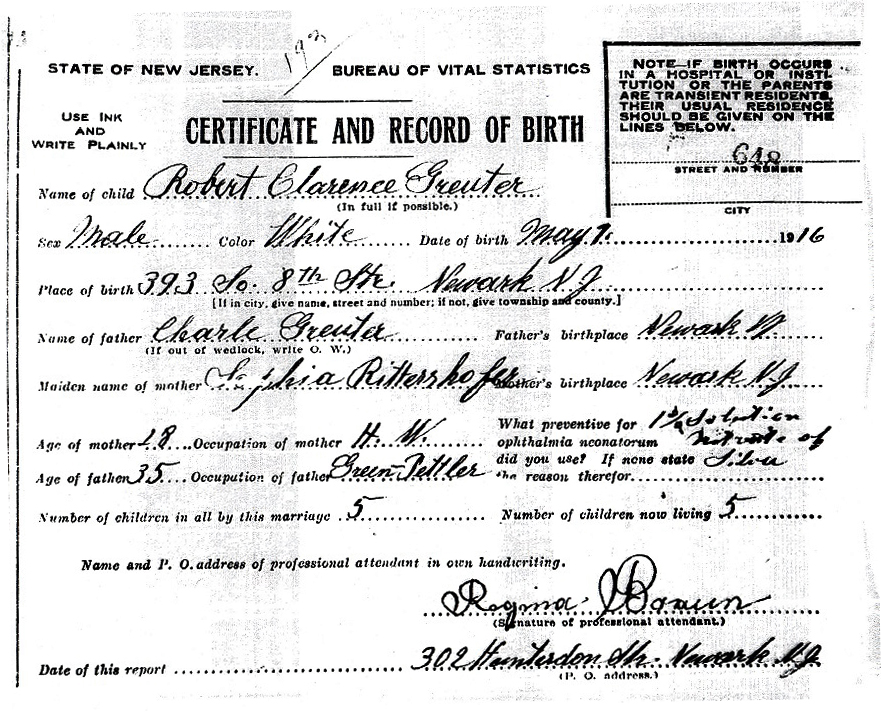 193
STATE OF NEW JERSEY. BUREAU OF VITAL STATISTICS
NOTE—IF BIRTH OCCURS
IN A HOSPITAL OR INSTI-
TUTION OR THE PARENTS
ARE TRANSIENT RESIDENTS,
THEIR USUAL RESIDENCE
SHOULD BE GIVEN ON THE
LINES BELOW.
USE INK
AND
WRITE PLAINLY
CERTIFICATE AND RECORD OF BIRTH
648
STREET AND NUMBER
CITY
Name of child Robert Clarence Greuter
(In full if possible.)
Sex Male Color White Date of birth May 7. 1916
Place of birth 393 So. 8th Str. Newark N.J
[If in city, give name, street and number; if not, give township and county.]
Name of father Charle Greuter Father's birthplace Newark N
(If out of wedlock, write O. W.)
Maiden name of mother Sophia Rittershofer Mother's birthplace Newark N.J
Age of mother 28 Occupation of mother H. W. What preventive for 1% Solution
ophthalmia neonatorum Nitrate of
did you use? If none state Silva
Age of father 35 Occupation of father Green Pettler the reason therefor
Number of children in all by this marriage 5 Number of children now living 5
Name and P. O. address of professional attendant in own handwriting.
Regina Braun
(Signature of professional attendant.)
Date of this report 302 Hunterdon Str. Newark N.J.
(P. O. address.)